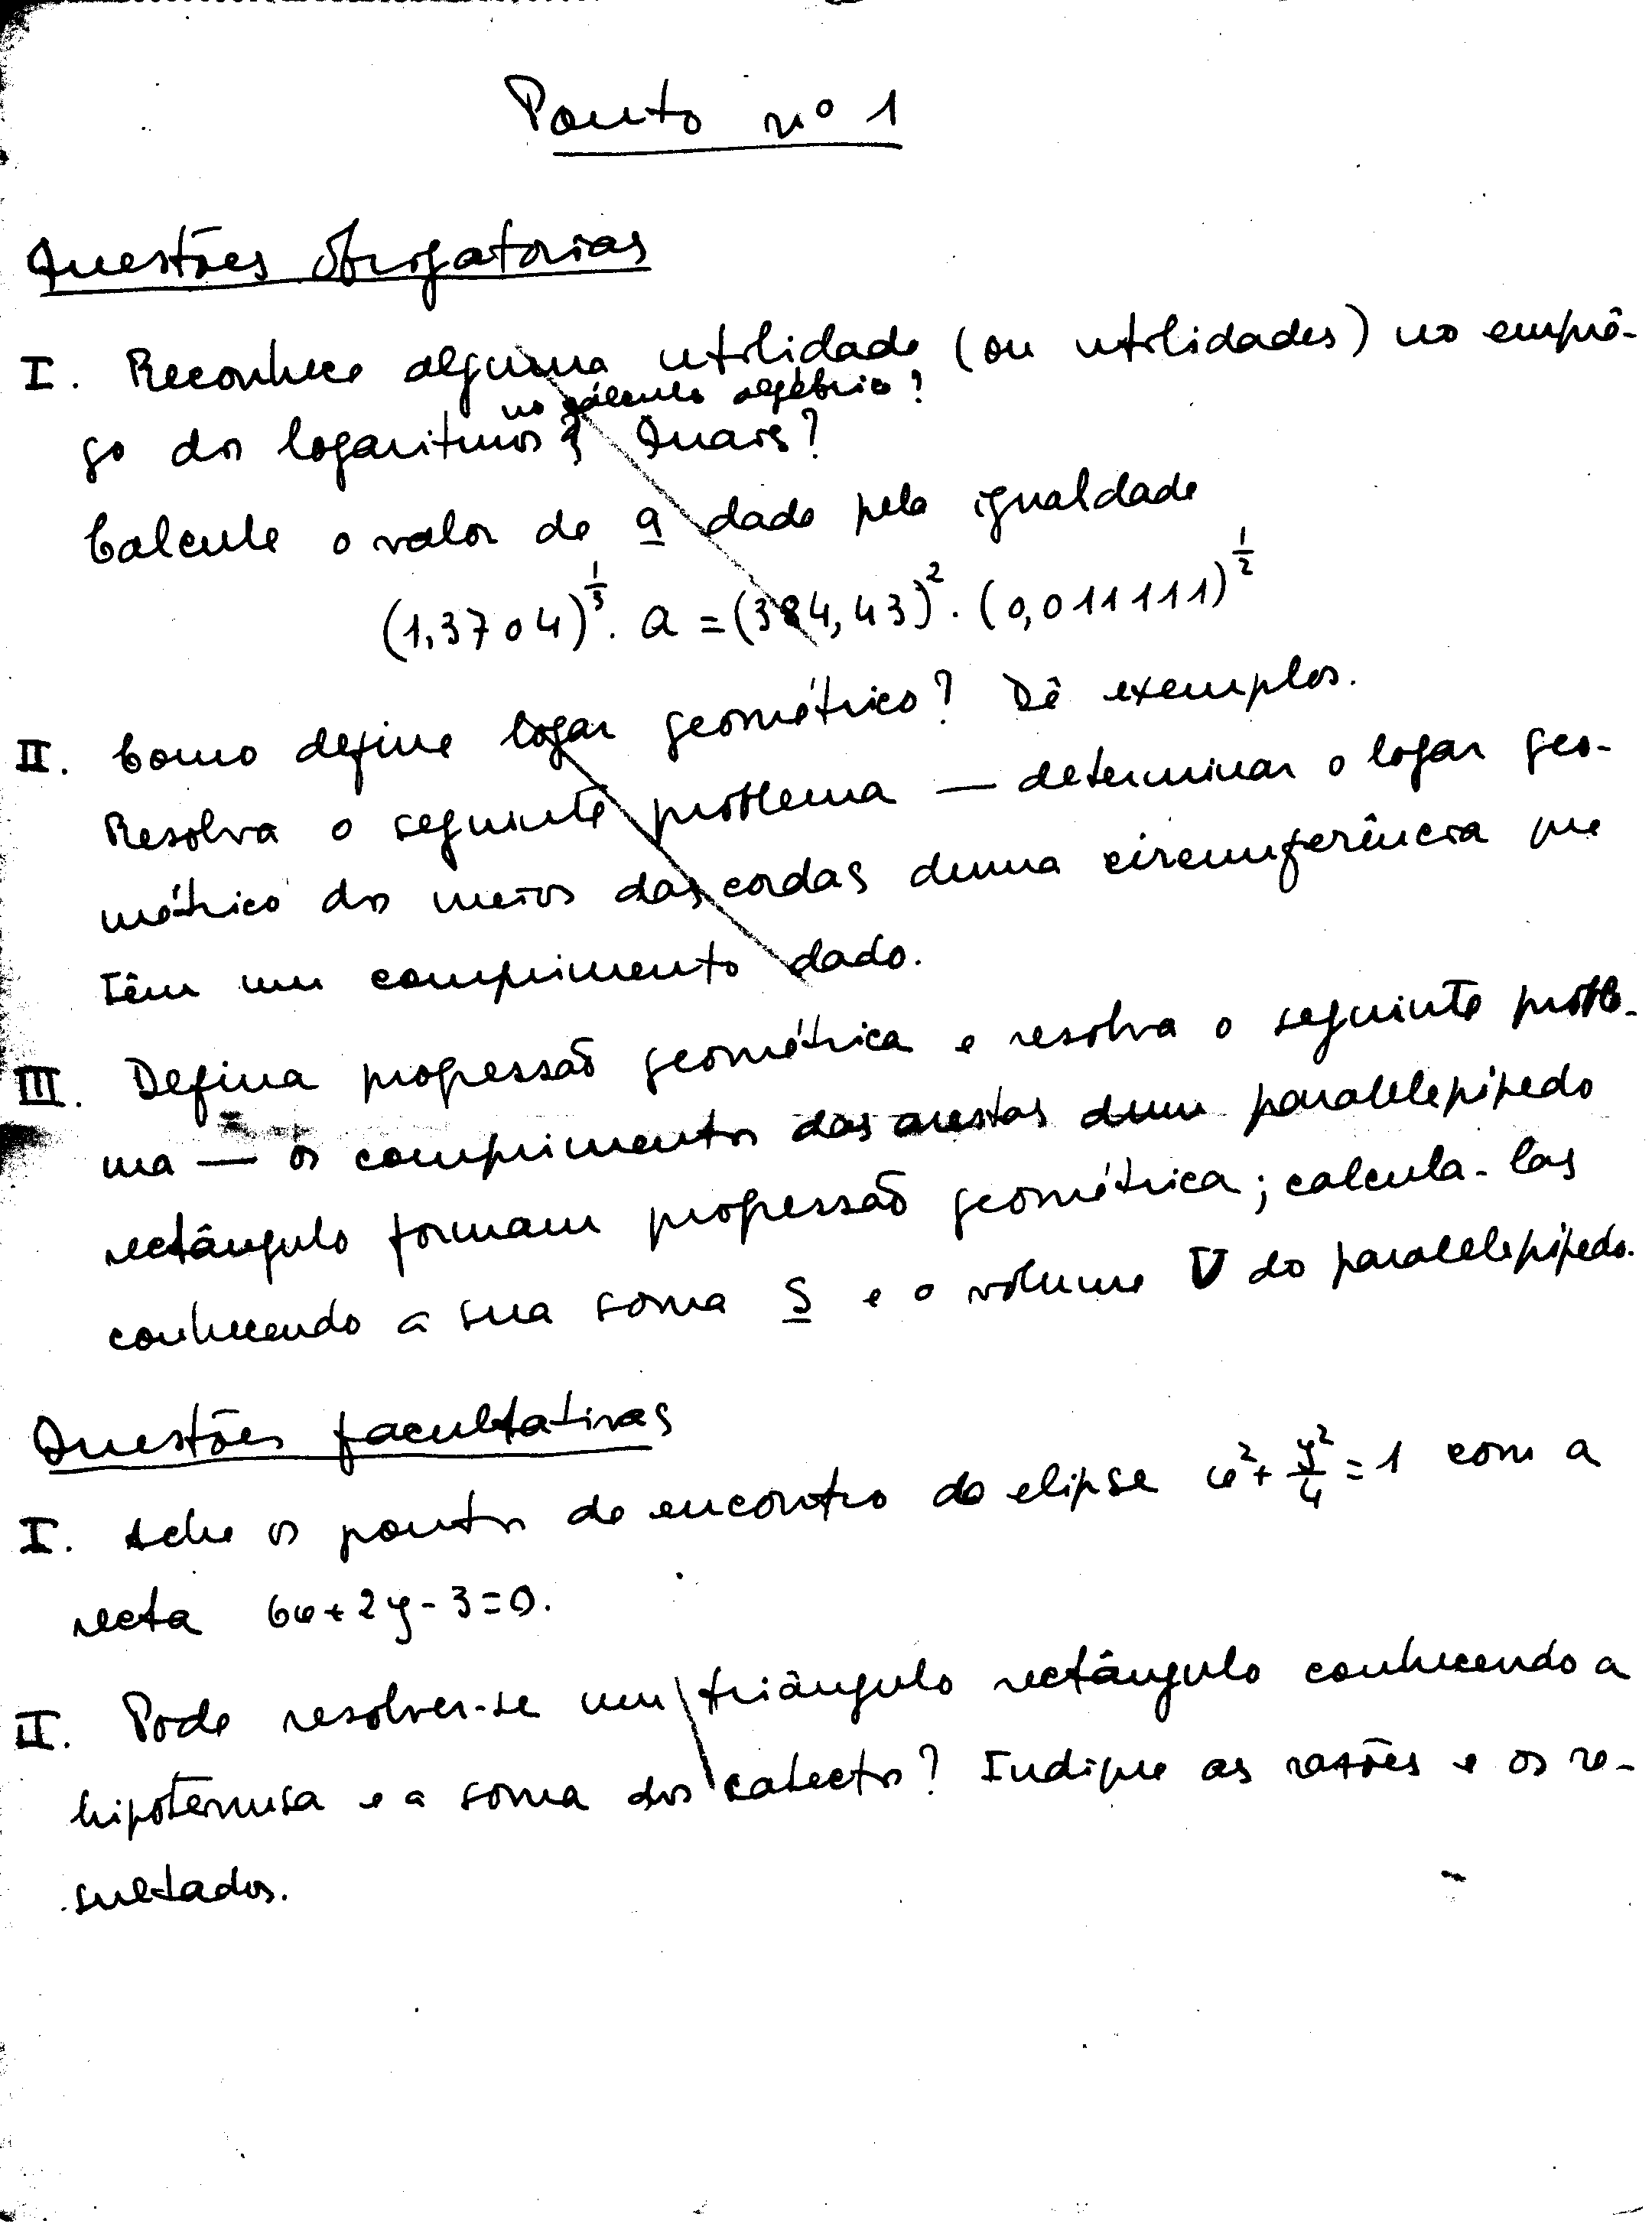 Ponto nº 1
Questões obrigatorias
I. Reconhece alguma utilidade (ou utilidades) no emprê-
no cálculo algébrico?
go dos logaritmos? Quais?
Calcule o valor de a dado pela igualdade
(1,3704)^{1/3} . a = (384,43)^2 . (0,011111)^{1/2}
II. Como define logar geométrico? Dê exemplos.
Resolva o seguinte problema — determinar o logar geo-
métrico dos meios das cordas duma circunferência que
têm um comprimento dado.
III. Defina progressão geométrica e resolva o seguinte proble-
ma — os comprimentos das arestas dum paralelepípedo
rectângulo formam progressão geométrica; calcula-las
conhecendo a sua soma S e o volume V do paralelepípedo.
Questões facultativas
I. Ache os pontos de encontro da elipse x² + y²/4 = 1 com a
recta 6x + 2y - 3 = 0.
II. Pode resolver-se um triângulo rectângulo conhecendo a
hipotenusa e a soma dos catectos? Indique as razões e os re-
sultados.